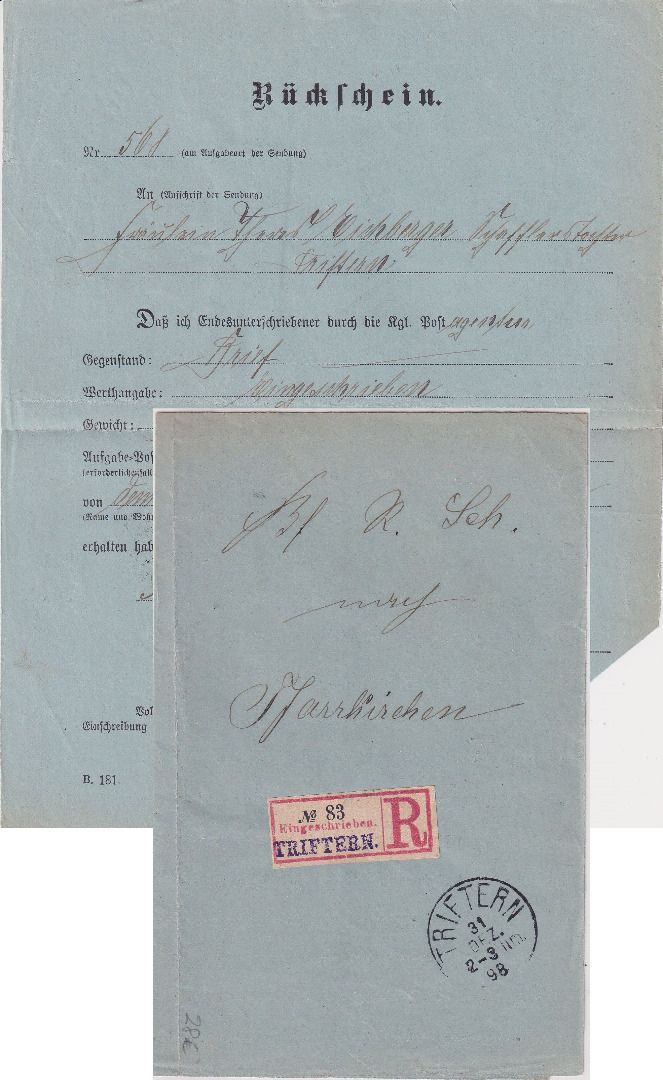 Rückschein.
Nr 561 (am Aufgabeort der Sendung)
An (Aufschrift der Sendung)
Fräulein Theres Eichberger Schäfflerstochter
Triftern
Daß ich Endesunterschriebener durch die Kgl. Postagentur
Gegenstand: Brief
Werthangabe: Eingeschrieben
Gewicht:
Aufgabe-Pos
(erforderlichenfall
von dem
(Name und Wohn
erhalten hab
Vol
Einschreibung
B. 181
Bf R. Sch.
nach
Pfarrkirchen
№ 83
Eingeschrieben.
TRIFTERN.
R
TRIFTERN
31
DEZ.
2-3 NM
98
28€